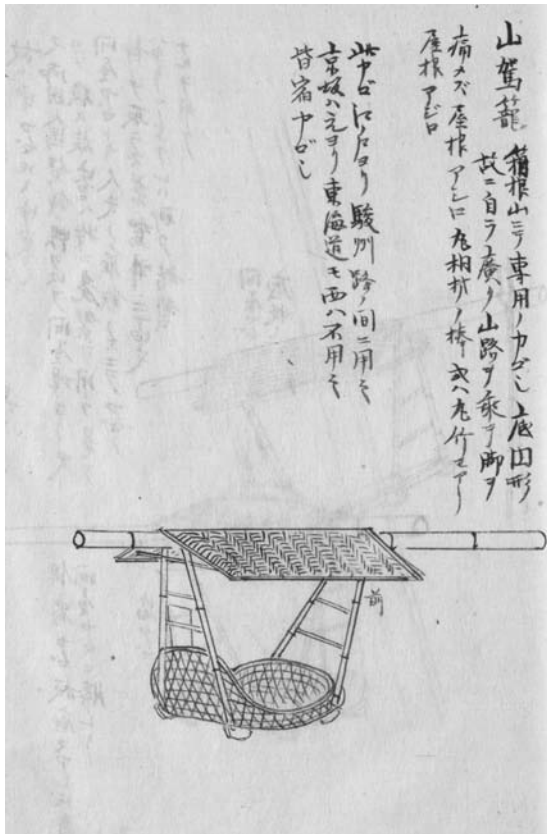 山駕籠 箱根山ニテ専用ノカゴ也 底円形
故ニ自ラ廣ク山路ヲ乗テ脚ヲ
痛メズ屋根アジロ丸桐材ノ棒或ハ丸竹モアリ
屋根アジロ
此カゴ江戸ヨリ駿州路ノ間ニ用フ
京坂ハ元ヨリ東海道モ西ハ不用フ
皆宿カゴ也
前